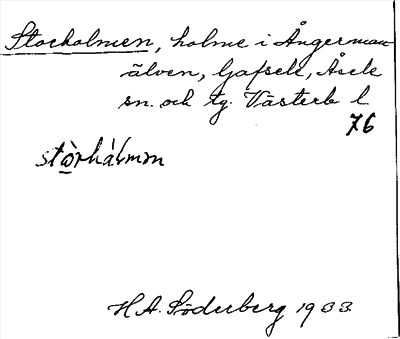 Storholmen, holme i Ångerman
älven, Gafsele, Åsele
sn. och tg. Västerb l
76
stòrhálmm
H.A. Söderberg 1933